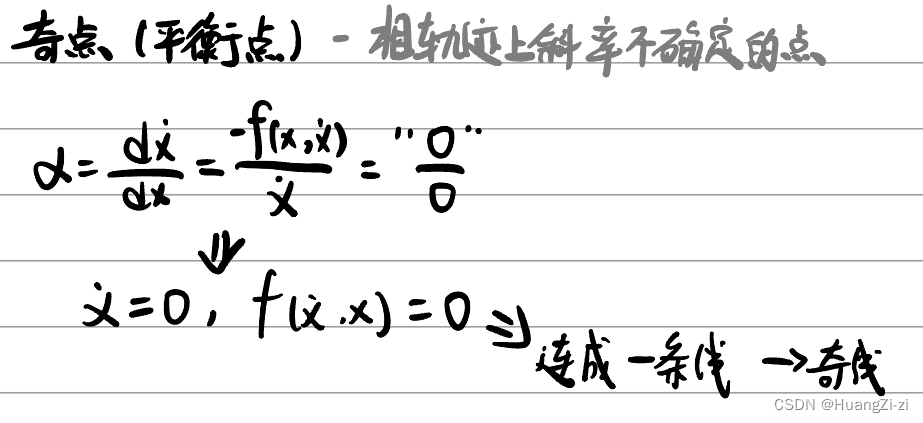 奇点 (平衡点) - 相轨迹上斜率不确定的点
α = dẋ/dx = -f(x,ẋ)/ẋ = "0/0"
⇓
ẋ = 0, f(ẋ.x) = 0 ⇒ 连成一条线 → 奇线
CSDN @HuangZi-zi